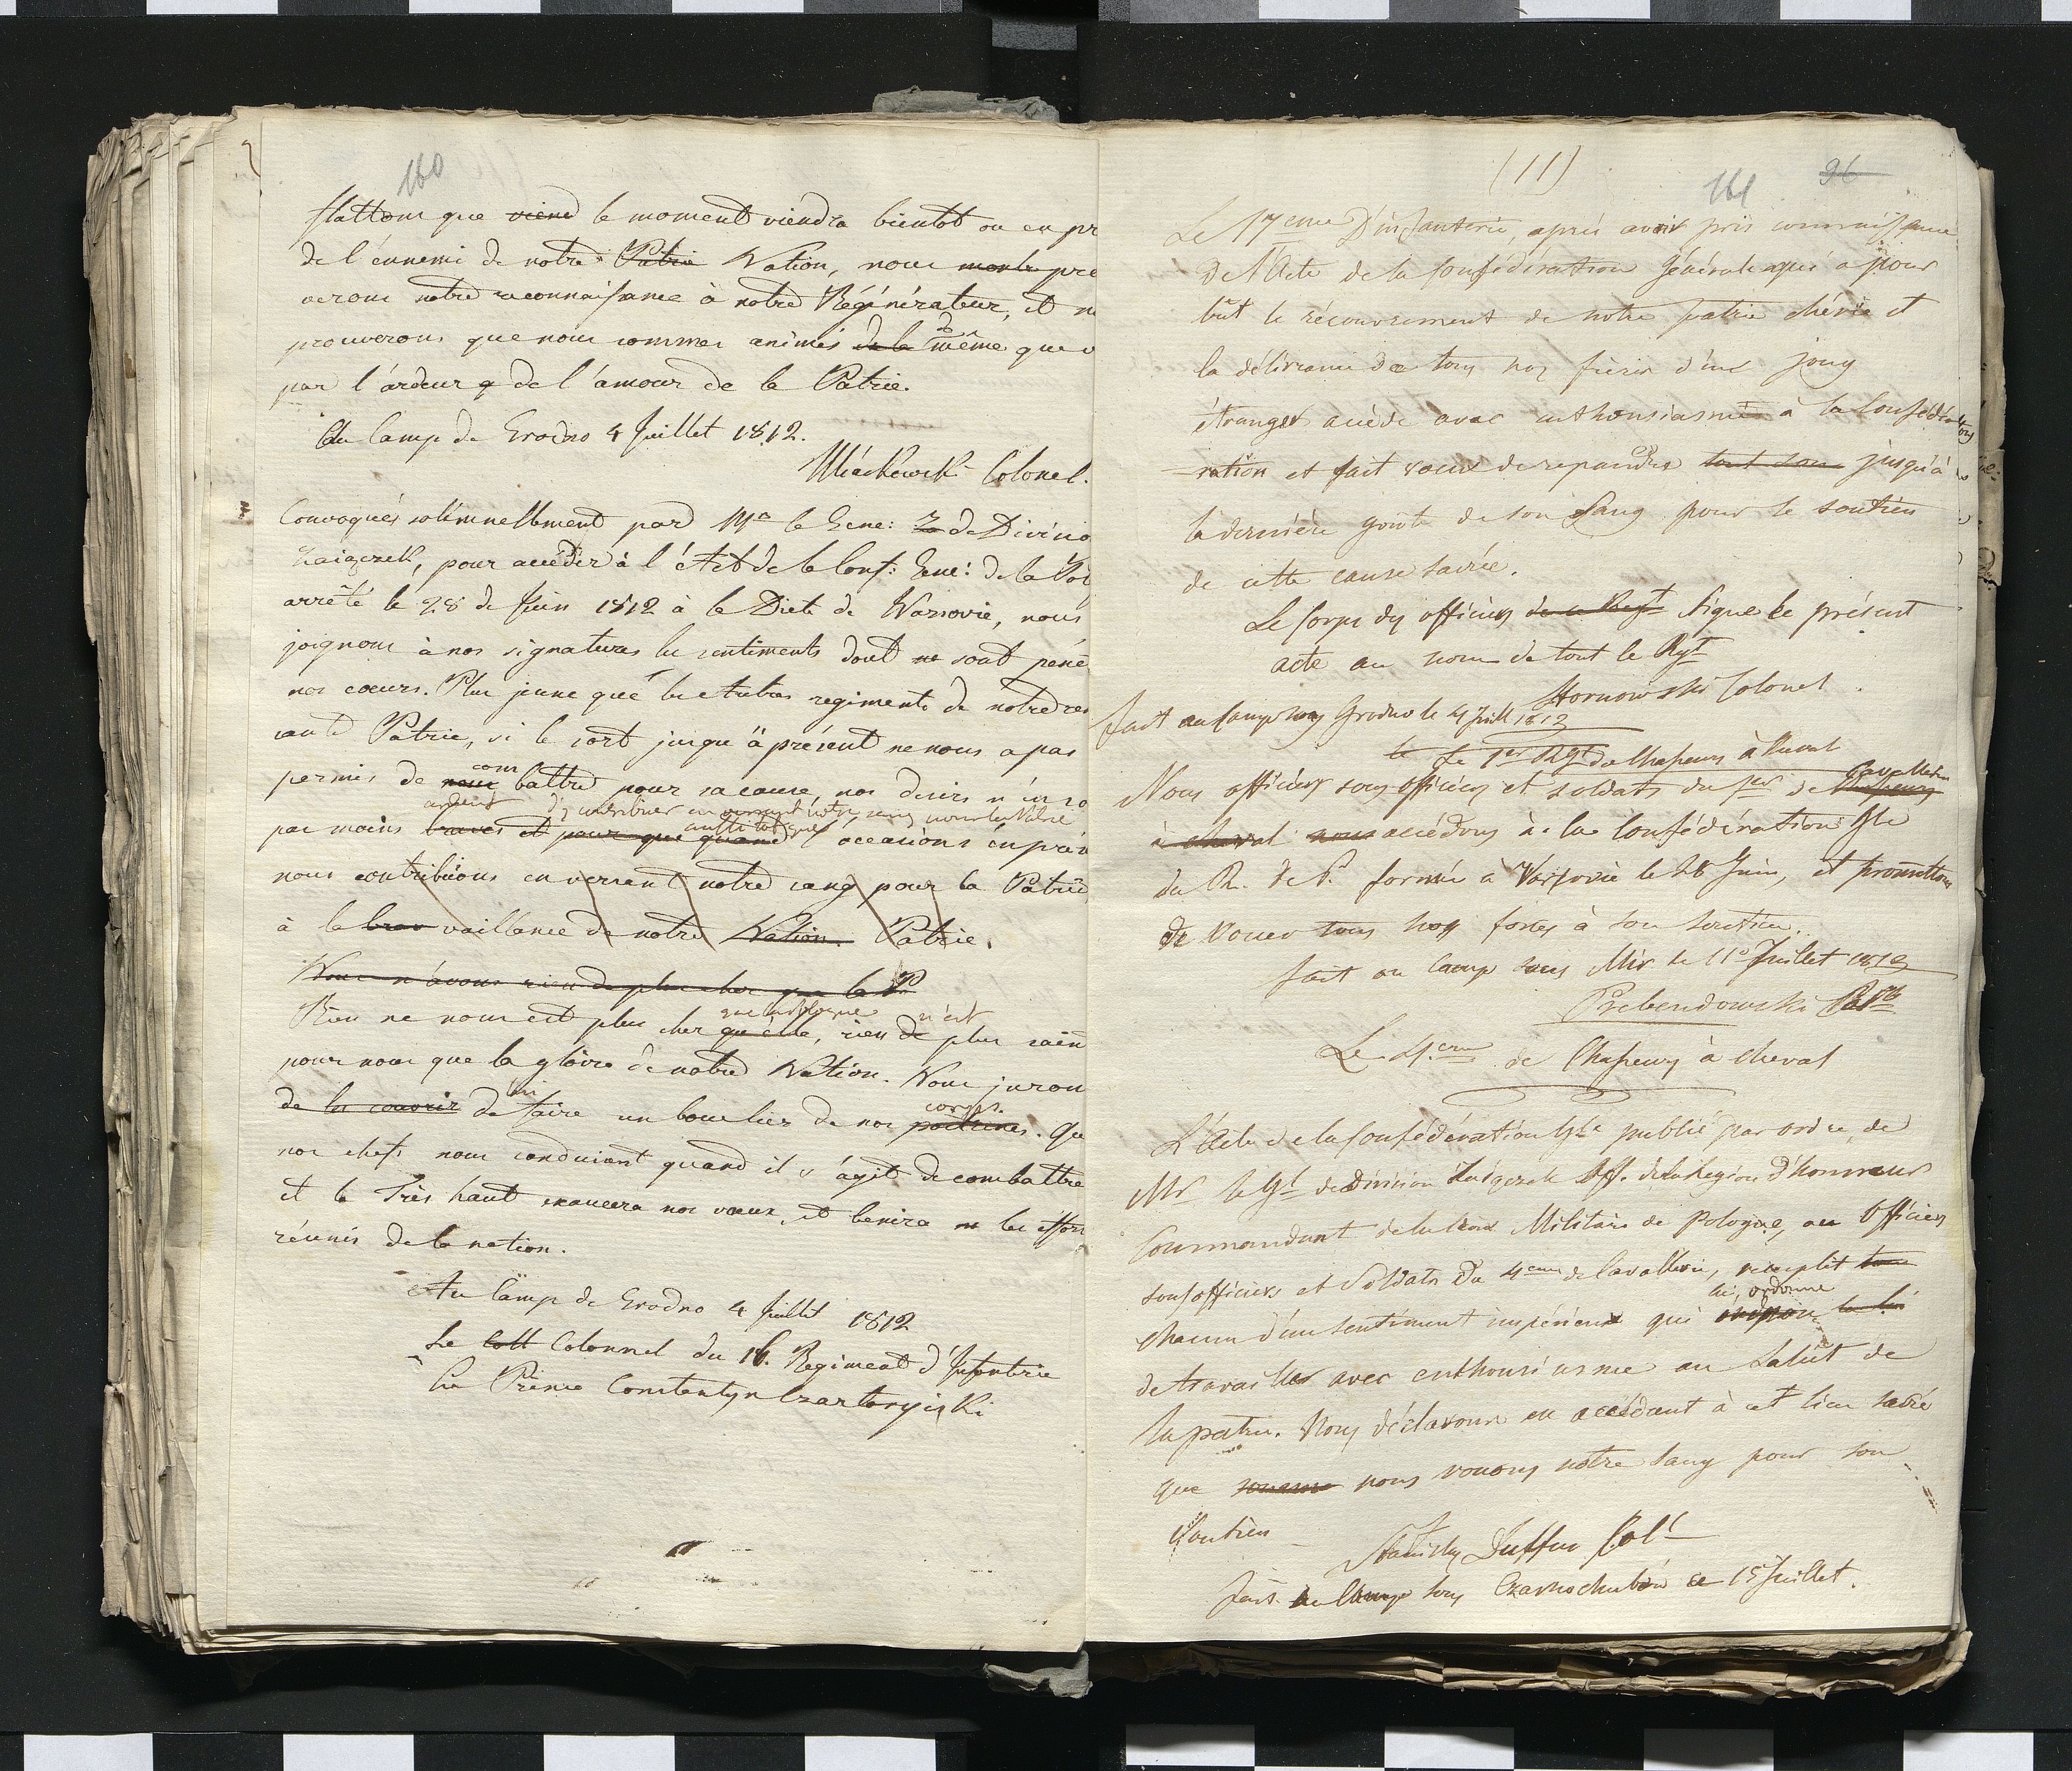 160
flattons que viend le moment viendra bientot ou en pr
de l'énnemi de notre Patrie Nation, nous montre pre
verons notre reconnaisance à notre Régénérateur, et n
prouverons que nous sommes animés de la même que v
par l'árdeur q de l'ámour de la Patrie.
Au Camp de Grodno 4 Juillet 1812.
Miáskowski Colonel.
Convoqués solémnellment par Mr le Gene: de Divisio
Zaiączek, pour accéder à l'Act de la Conf: Gene: de la Pol
arrêté le 28 de Juin 1812 à la Diete de Warsovie, nous
joignons à nos signatures les sentiments dont ne sont pené
nos coeurs. Plus jeune que les Autres regiments de notre re
Patrie, si le sort jusqu'à présent ne nous a pas
com
permis de nous battre pour sa cause, nos desirs n'en so
ardent d'y contribuer en versant notre sang pour la Patrie
aussitot que
pas moins braves et pour que quand l'occasions en prés
nous contribuions en versant notre sang pour la Patrie
à la brav vaillance de notre Nation. Patrie.
Nous n'avons rien de plus cher que la P
n'est
Rien ne nous est plus cher que elle, rien de plus saint
pour nous que la gloire de notre Nation. Nous juron
lui corps.
de les couvrir de faire un bouclier de nos poitrines. Que
nos chefs nous conduisent quand il s'ágit de combattre
et le Très haut exaucera nos voeux, et benira les éffor
réunis de la nation.
Au Camp de Grodno 4 Juillet 1812
Le Coll Colonnel du 16. Regiment d'Infantrie
Le Prince Constantyn Czartoryiski
(11)
161 96
Le 17eme D'infanterie, aprés avoir pris connaissance
de l'Acte de la Confédération Générale qui a pour
bùt le récouvrement de notre patrie chérie et
la délivrance de tous nos fréres d'un joug
étranger accéde avec enthousiasme à la Confédé
ration et fait voeux de repandre tout son jusqu'à
la dernière goute de son Sang pour le soutien
de cette cause sacrée.
Le Corps des officiers de ce Regt Signe le présent
acte au nom de tout le Rgt
Hornowski Colonel.
fait au Camp sous Grodno le 4 Juill 1812
le Le 1er Rgt de Chasseurs à Cheval
Cavallerie
Nous officiers sous officiers et soldats du 1er de Chasseurs
à cheval nous accédons à la Confédération Gle
du R. de P. formée a Varsovie le 28 Juin, et promettons
de vouer tous nos forces à son soutien.
fait au Camp sous Mir le 11 Juillet 1812
Przebendowski Col
Le 4.eme de Chasseurs à cheval
L'Acte de la Confédération Gle publié par ordre de
Mr le Gl de division Zaiączek Off. de la Legion d'honneur
Commandant de la Croix Militaire de Pologne, au Officiers
sousofficiers et Soldats du 4eme de Cavallerie, remplit tous
lui, ordonne
chacun d'un sentiment impérieux qui impose la loi
de travailler avec enthousiasme au Salut de
la patrie. Nous déclarons en accédant à cet lien sacré
que nous vouons notre sang pour son
Soutien
Stanisłas Duffus Col
fait au Camp sous le 15 Juillet.